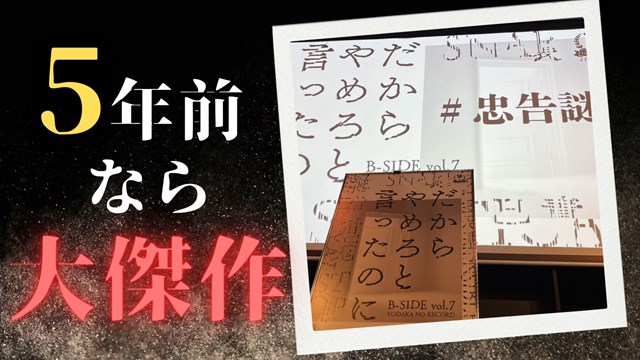 5年前
なら
大傑作
だから
やめろと
言ったの
B-SIDE vol.7
#忠告謎
だから
やめろと
言ったのに
B-SIDE vol.7
YODAKA NO RECORD